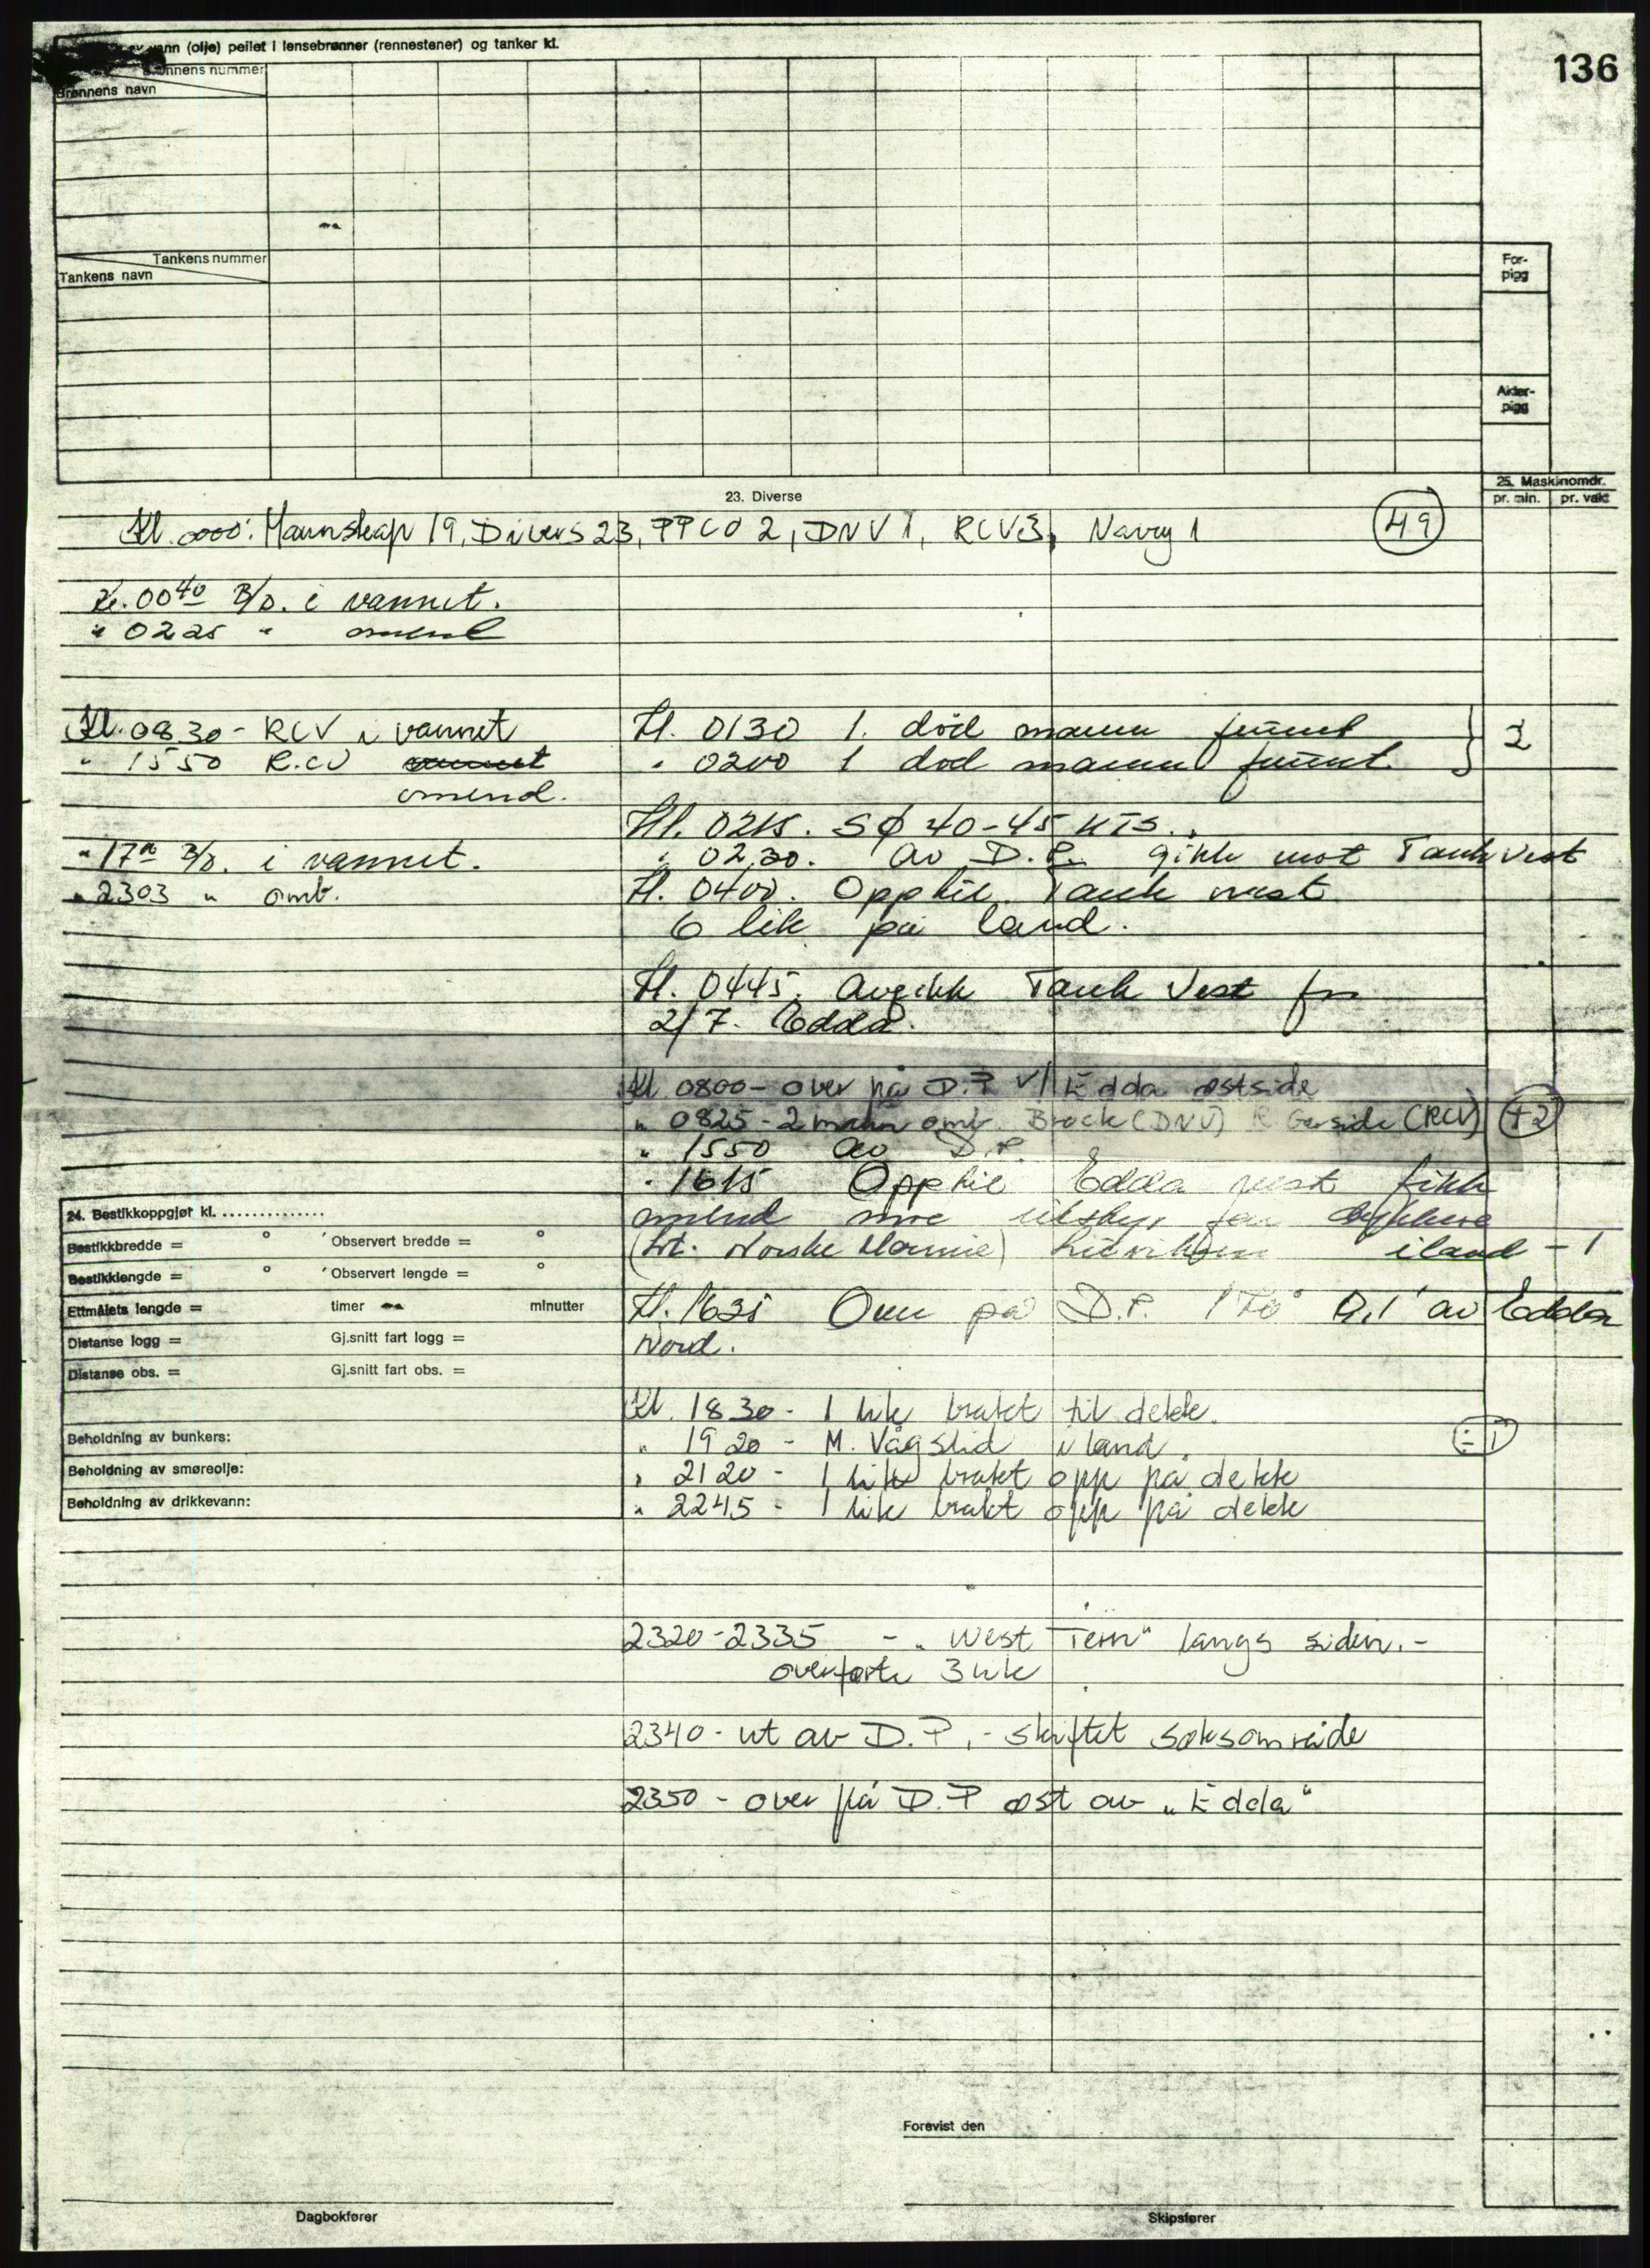 136
vann (olje) peilet i lensebrønner (rennestener) og tanker kl.
Brønnens nummer
Brønnens navn
Tankens nummer
Tankens navn
For-
pigg
Akter-
pigg
23. Diverse
25. Maskinomdr.
pr. min. pr. vakt
Kl. 0000: Mannskap 19, Divers 23, PPCO 2, DNV 1, RCV 3, Navy 1 49
Kl. 0040 B/D. i vannet.
" 0225 " ombord
Kl. 0830 - RCV i vannet
" 1550 R.CV vannet
ombord.
" 17 B/D. i vannet.
" 2303 " omb.
Kl. 0130 1. död mann funnet
" 0200 1 död mann funnet } 2
Kl. 0215. SØ 40-45 KTS.
" 0230. av D.P. gikk mot Tank Vest
Kl. 0400. Opphil. Tank vest
6 lik på land.
Kl. 0445. Avgikk Tank Vest for
2/7. Edda.
Kl 0800 - over på D.P v/ Edda østside
" 0825 - 2 mann omb. Brock (DNV) R Garside (RCV) +2
" 1550 av D.P.
" 1615 Opphil Edda vest fikk
ombord noe utstyr for dykkere
(Lt. Norske Marine) iland - 1
Kl. 1635 Over på D.P. 170° 0,1' av Edda
Nord.
24. Bestikkoppgjør kl. ..............
Bestikkbredde = ° ' Observert bredde = °
Bestikklengde = ° ' Observert lengde = °
Ettmålets lengde = timer minutter
Distanse logg = Gj.snitt fart logg =
Distanse obs. = Gj.snitt fart obs. =
Beholdning av bunkers:
Beholdning av smøreolje:
Beholdning av drikkevann:
Kl. 1830 - 1 lik brakt til dekk.
" 1920 - M. Vågslid i land. ÷1
" 2120 - 1 lik brakt opp på dekk
" 2245 - 1 lik brakt opp på dekk
2320-2335 - "West Tern" langs siden. -
overførte 3 lik
2340 - ut av D.P. - skiftet søksområde
2350 - over på D.P øst av "Edda"
Forevist den
Dagbokfører
Skipsfører